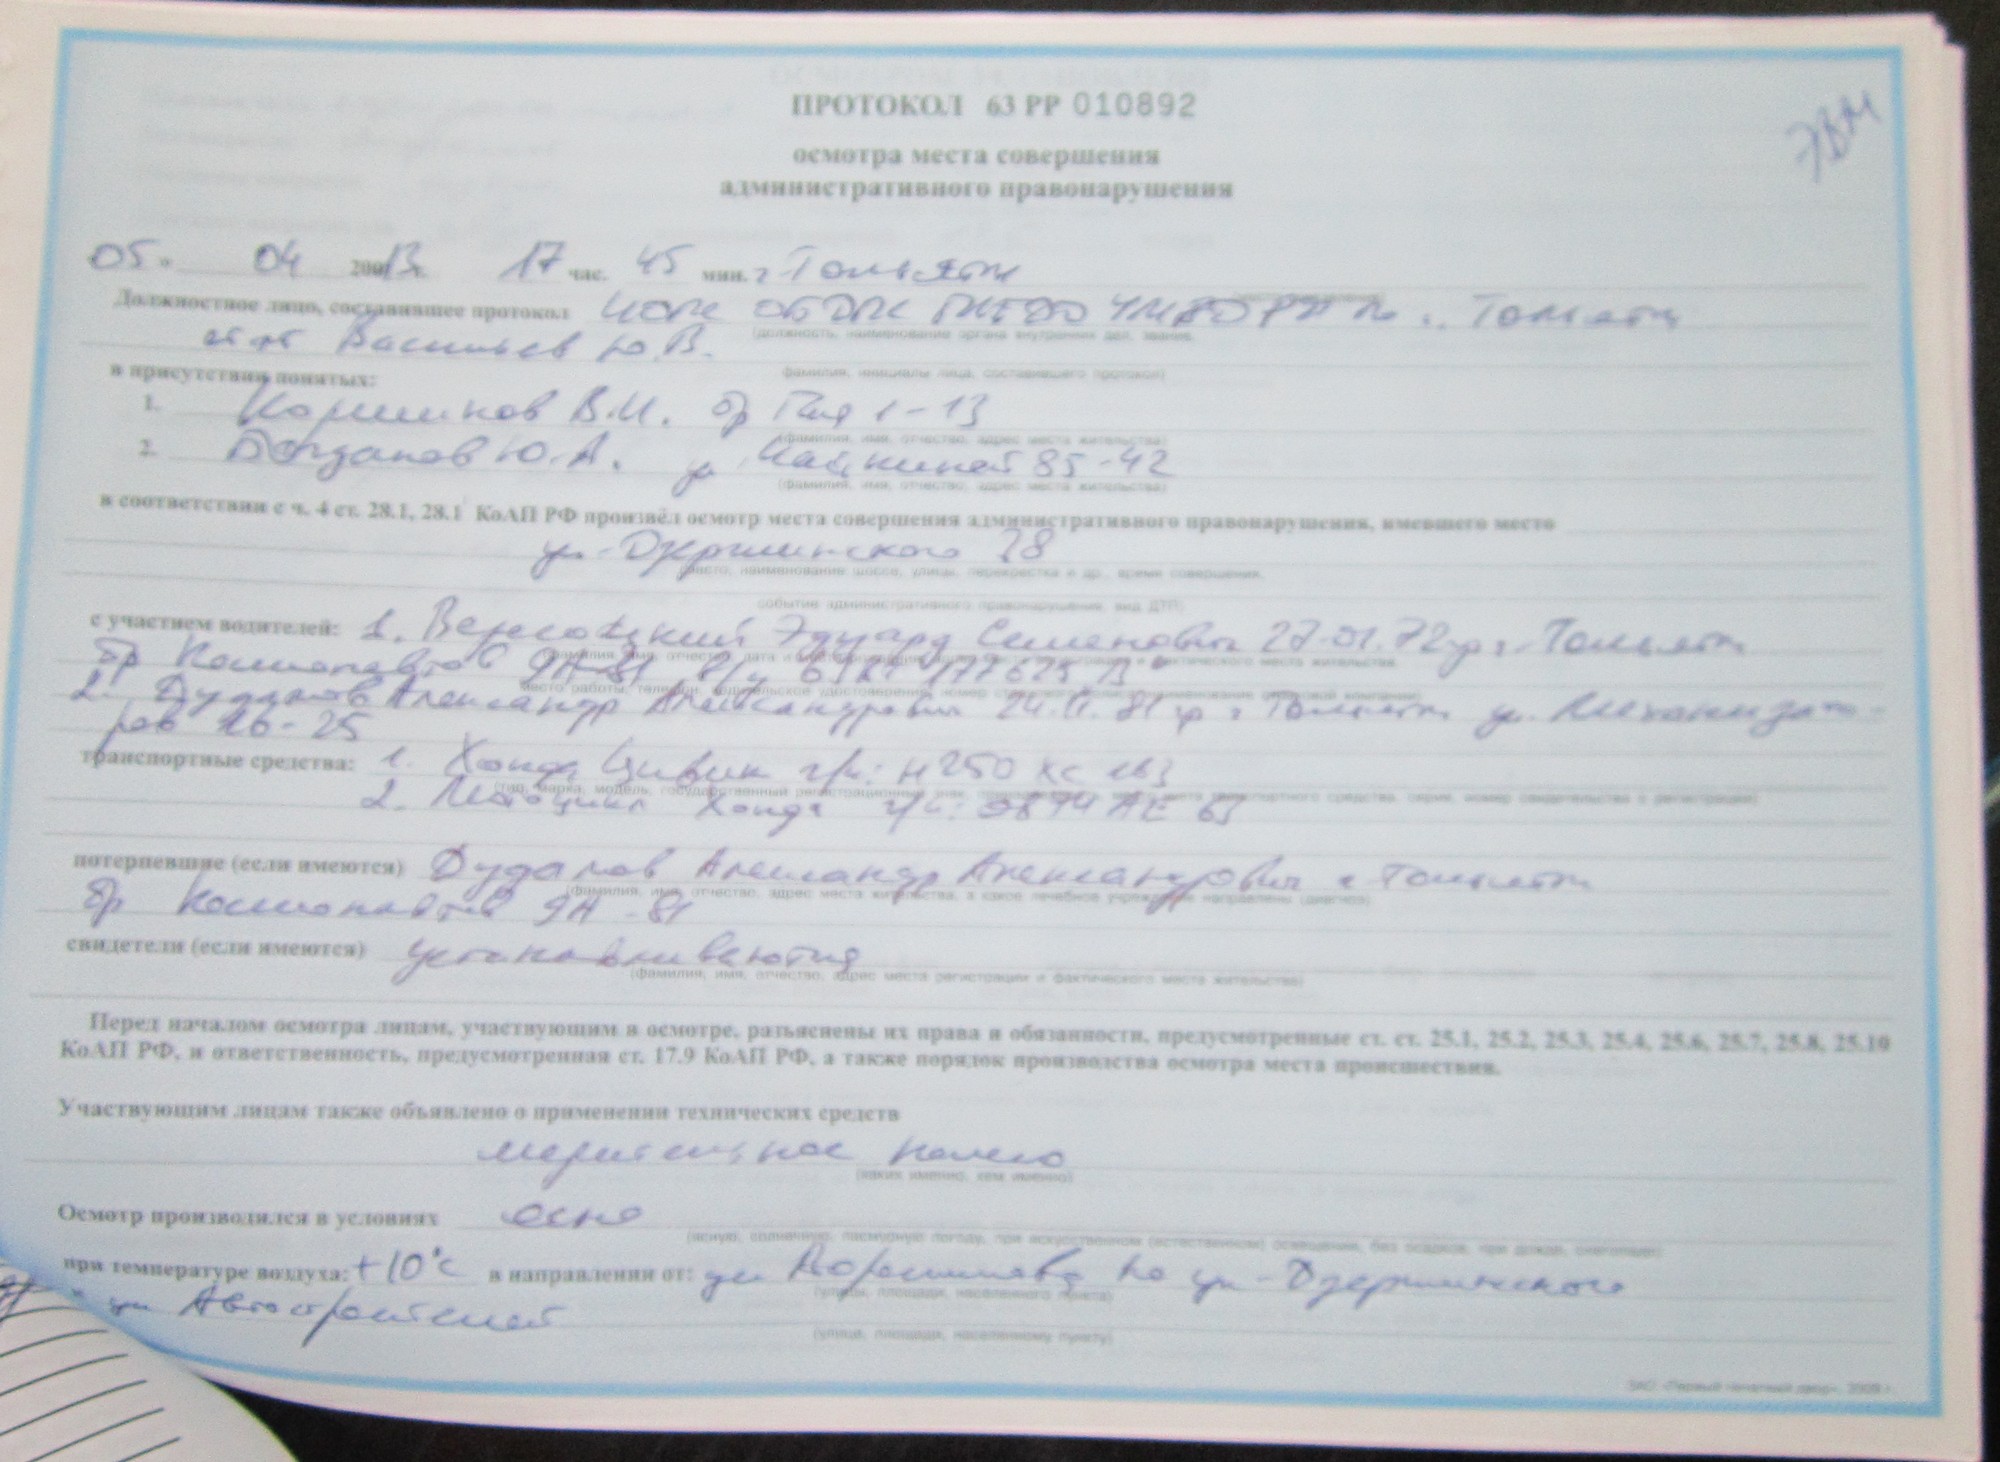 ПРОТОКОЛ 63 РР 010892
осмотра места совершения
административного правонарушения
05 " 04 20013г. 17 час. 45 мин. г Тольятти
Должностное лицо, составившее протокол ОБ ДПС ГИБДД г. Тольятти
(должность, наименование органа внутренних дел, звание,
Васильев Ю.В.
фамилия, инициалы лица, составившего протокол)
в присутствии понятых:
1. Коршиков В.И. бр Гая 1-13
(фамилия, имя, отчество, адрес места жительства)
2. Богданов Ю.А. ул 85-42
(фамилия, имя, отчество, адрес места жительства)
в соответствии с ч. 4 ст. 28.1, 28.1¹ КоАП РФ произвёл осмотр места совершения административного правонарушения, имевшего место
ул. Дзержинского 28
(место, наименование шоссе, улицы, перекрестка и др., время совершения,
событие административного правонарушения, вид ДТП)
с участием водителей: 1. Эдуард Семенович 27.01.72 гр г. Тольятти
бр Космонавтов 9А-81 В/у
2. Дудалов Александр Александрович 24.11.81 гр г Тольятти ул. Механизато-
ров 26-25
транспортные средства: 1. Хонда Цивик г/н: н250 хс 163
2. Мотоцикл Хонда г/н: 2874 АЕ 63
потерпевшие (если имеются) Дудалов Александр Александрович г Тольятти
(фамилия, имя, отчество, адрес места жительства, в какое лечебное учреждение направлены (диагноз)
бр Космонавтов 9А-81
свидетели (если имеются) устанавливаются
(фамилия, имя, отчество, адрес места регистрации и фактического места жительства)
Перед началом осмотра лицам, участвующим в осмотре, разъяснены их права и обязанности, предусмотренные ст. ст. 25.1, 25.2, 25.3, 25.4, 25.6, 25.7, 25.8, 25.10
КоАП РФ, и ответственность, предусмотренная ст. 17.9 КоАП РФ, а также порядок производства осмотра места происшествия.
Участвующим лицам также объявлено о применении технических средств
мерительное колесо
(каких именно, кем именно)
Осмотр производился в условиях ясно
(ясную, солнечную, пасмурную погоду, при искусственном (естественном) освещении, без осадков, при дожде, снегопаде)
при температуре воздуха: +10°с в направлении от: ул Ворошилова по ул. Дзержинского
(улицы, площади, населенного пункта)
к ул Автостроителей
(улице, площади, населенному пункту)
ЗАО «Первый печатный двор», 2009 г.